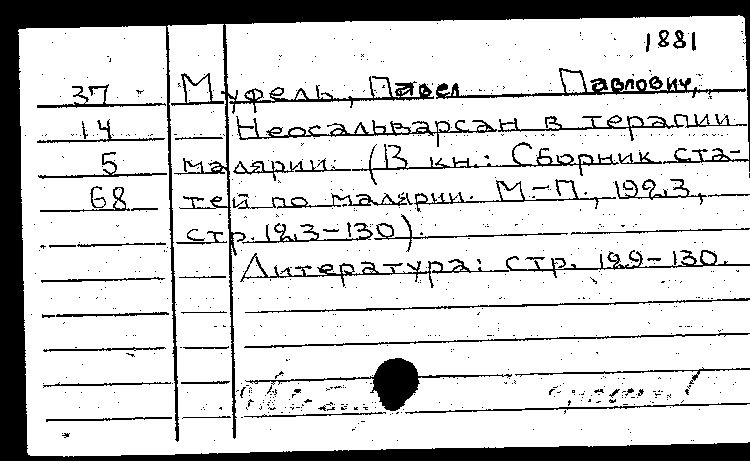 1881
37 Муфель, Павел Павлович,
14 Неосальварсан в терапии
5 малярии. (В кн.: Сборник ста-
68 тей по малярии. М.-П., 1923,
стр. 123-130).
Литература: стр. 129-130.